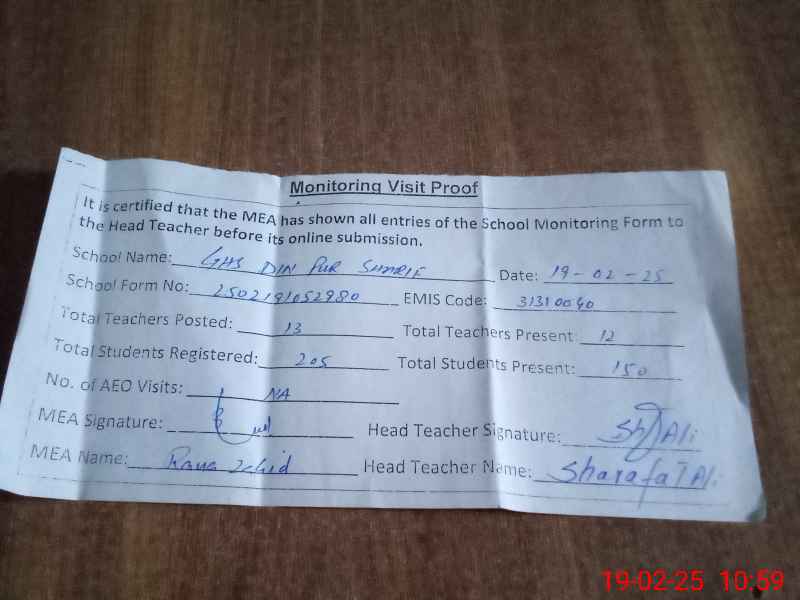 Monitoring Visit Proof
It is certified that the MEA has shown all entries of the School Monitoring Form to
the Head Teacher before its online submission.
School Name: GHS DIN PUR SHARIF Date: 19-02-25
School Form No: 2502191052980 EMIS Code: 31310040
Total Teachers Posted: 13 Total Teachers Present: 12
Total Students Registered: 205 Total Students Present: 150
No. of AEO Visits: NA
MEA Signature: Head Teacher Signature: Sh Ali
MEA Name: Rana Zahid Head Teacher Name: Sharafat Ali
19-02-25 10:59